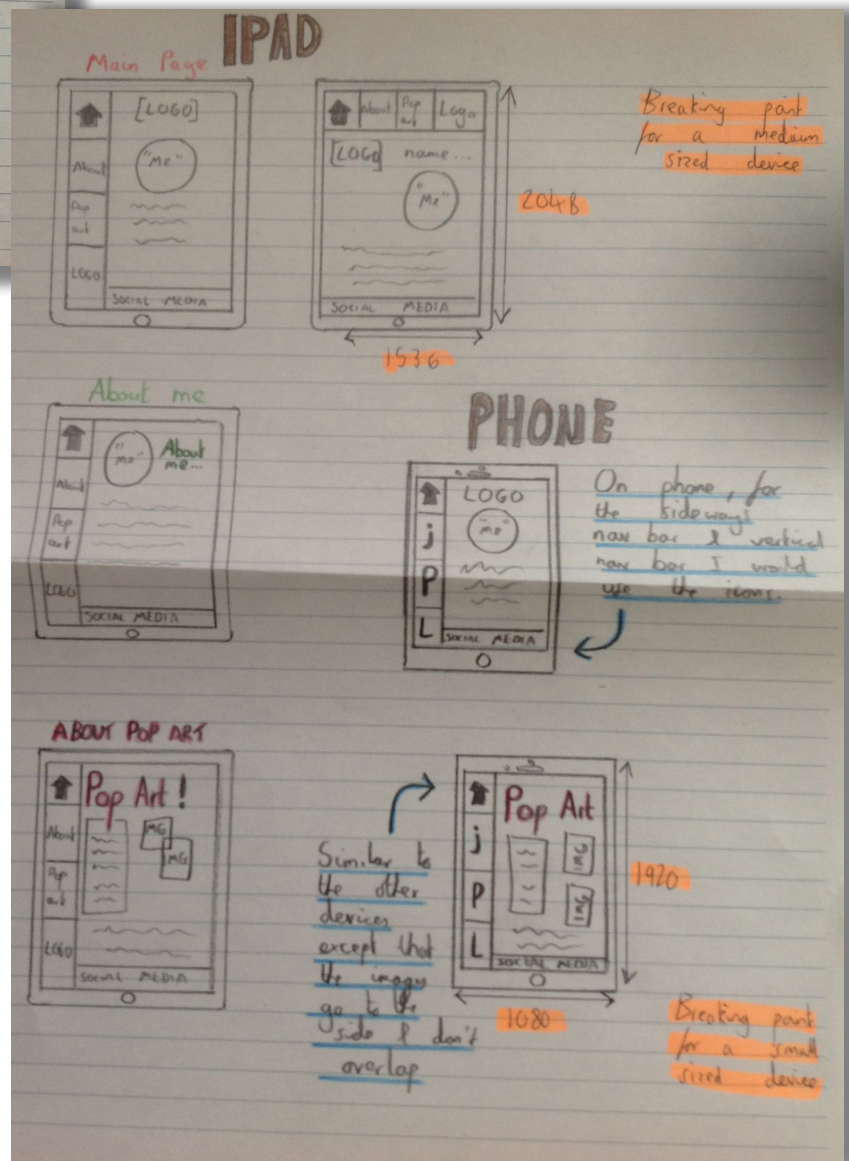 IPAD
Main Page
[LOGO]
"Me"
About
Pop
art
LOGO
SOCIAL MEDIA
About
Pop
art
Logo
[LOGO] name...
"Me"
SOCIAL MEDIA
2048
1536
Breaking point
for a medium
sized device
About me
"me"
About
me...
About
Pop
art
LOGO
SOCIAL MEDIA
PHONE
LOGO
"me"
j
P
L
SOCIAL MEDIA
On phone, for
the sideways
nav bar & vertical
nav bar I would
use the icons.
ABOUT POP ART
Pop Art!
About
Pop
art
LOGO
IMG
IMG
SOCIAL MEDIA
Similar to
the other
devices
except that
the images
go to the
side & don't
overlap
Pop Art
j
P
L
IMG
IMG
SOCIAL MEDIA
1920
1080
Breaking point
for a small
sized device